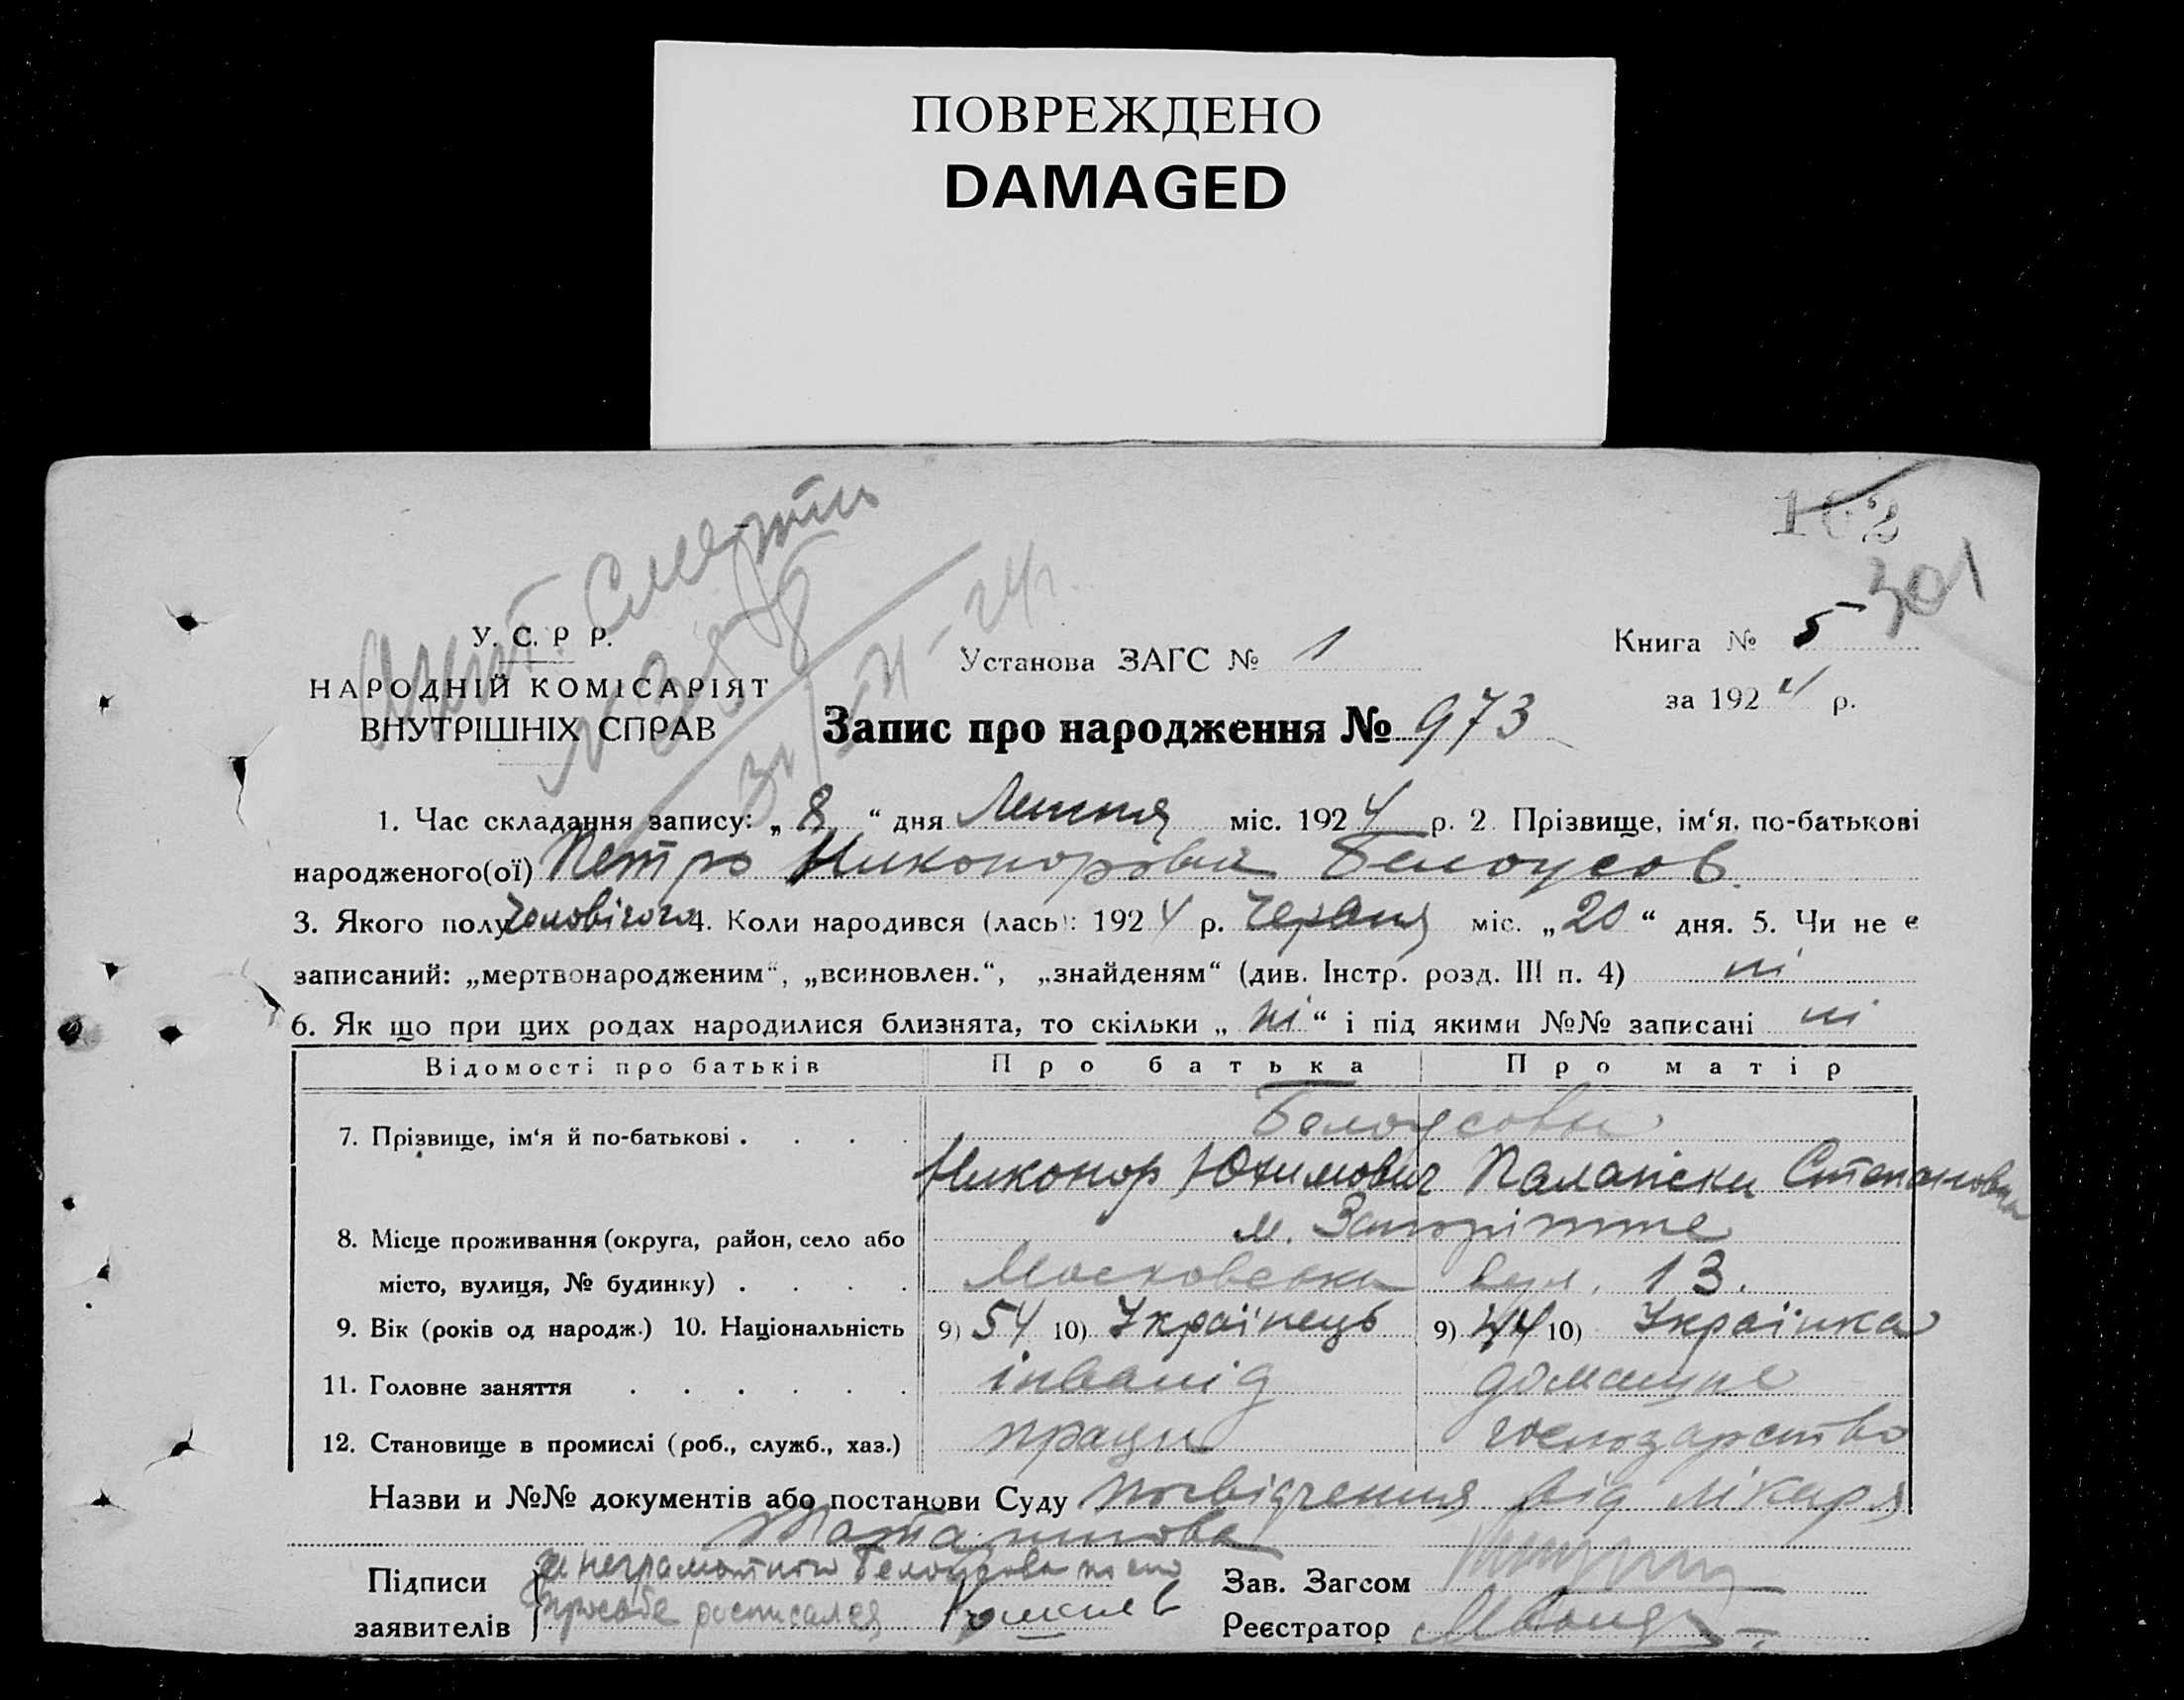 ПОВРЕЖДЕНО
DAMAGED
162
301
Акт. Смерти
У. С. Р Р.
НАРОДНІЙ КОМІСАРІЯТ
ВНУТРІШНІХ СПРАВ
Установа ЗАГС № 1
Книга № 5
за 1924 р.
Запис про народження № 973
1. Час складання запису: „ 8 “ дня Липня міс. 1924 р. 2. Прізвище, ім‘я, по-батькові
народженого(ої) Петро Никонорович Белоусов.
3. Якого полу Чоловічого 4. Коли народився (лась): 1924 р. Червня міс. „20“ дня. 5. Чи не є
записаний: „мертвонародженим“, „всиновлен.“, „знайденям“ (див. Інстр. розд. III п. 4) ні
6. Як що при цих родах народилися близнята, то скільки „ ні “ і під якими №№ записані ні
Відомості про батьків Про батька Про матір
7. Прізвище, ім‘я й по-батькові . . . . Белоусовы
Никонор Юхимович Палажка Степановна
8. Місце проживання (округа, район, село або м. Запоріжже
місто, вулиця, № будинку) . . . . Московська вул. 13.
9. Вік (років од народж.) 10. Національність 9) 54 10) Українець 9) 44 10) Українка
11. Головне заняття . . . . . . інвалід домашне
12. Становище в промислі (роб., служб., хаз.) праци господарство
Назви и №№ документів або постанови Суду посвідчення від лікаря
Підписи за неграмотного Белоусова по его Зав. Загсом
заявителів просьбе росписался Реєстратор